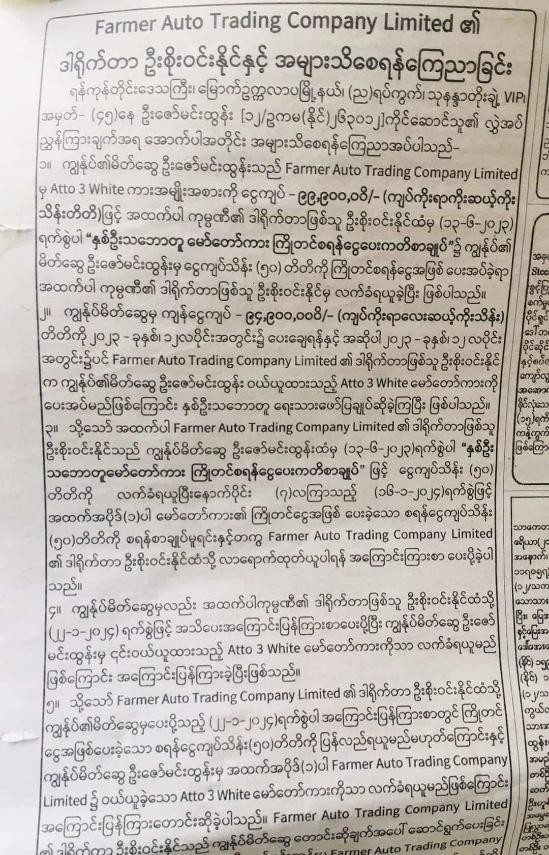 Farmer Auto Trading Company Limited ၏
ဒါရိုက်တာ ဦးစိုးဝင်းနိုင်နှင့် အများသိစေရန်ကြေညာခြင်း
ရန်ကုန်တိုင်းဒေသကြီး၊ မြောက်ဥက္ကလာပမြို့နယ်၊ (ည)ရပ်ကွက်၊ သုနန္ဒာတိုးချဲ့ VIP၊
အမှတ်- (၄၅)နေ ဦးဇော်မင်းထွန်း [၁၂/ဥကမ(နိုင်)၂၆၃၀၁၂]ကိုင်ဆောင်သူ၏ လွှဲအပ်
ညွှန်ကြားချက်အရ အောက်ပါအတိုင်း အများသိစေရန်ကြေညာအပ်ပါသည်–
၁။ ကျွန်ုပ်၏မိတ်ဆွေ ဦးဇော်မင်းထွန်းသည် Farmer Auto Trading Company Limited
မှ Atto 3 White ကားအမျိုးအစားကို ငွေကျပ် – ၉၉,၉၀၀,၀၀ိ/- (ကျပ်ကိုးရာကိုးဆယ့်ကိုး
သိန်းတိတိ)ဖြင့် အထက်ပါ ကုမ္ပဏီ၏ ဒါရိုက်တာဖြစ်သူ ဦးစိုးဝင်းနိုင်ထံမှ (၁၃-၆-၂၀၂၃)
ရက်စွဲပါ “နှစ်ဦးသဘောတူ မော်တော်ကား ကြိုတင်စရန်ငွေပေးကတိစာချုပ်”၌ ကျွန်ုပ်၏
မိတ်ဆွေ ဦးဇော်မင်းထွန်းမှ ငွေကျပ်သိန်း (၅၀) တိတိကို ကြိုတင်စရန်ငွေအဖြစ် ပေးအပ်ခဲ့ရာ
အထက်ပါ ကုမ္ပဏီ၏ ဒါရိုက်တာဖြစ်သူ ဦးစိုးဝင်းနိုင်မှ လက်ခံရယူခဲ့ပြီး ဖြစ်ပါသည်။
၂။ ကျွန်ုပ်မိတ်ဆွေမှ ကျန်ငွေကျပ် – ၉၄,၉၀၀,၀၀ိ/- (ကျပ်ကိုးရာလေးဆယ့်ကိုးသိန်း)
တိတိကို ၂၀၂၃ - ခုနှစ်၊ ၁၂လပိုင်းအတွင်း၌ ပေးချေရန်နှင့် အဆိုပါ ၂၀၂၃ - ခုနှစ်၊ ၁၂ လပိုင်း
အတွင်း၌ပင် Farmer Auto Trading Company Limited ၏ ဒါရိုက်တာဖြစ်သူ ဦးစိုးဝင်းနိုင်
က ကျွန်ုပ်၏မိတ်ဆွေ ဦးဇော်မင်းထွန်း ဝယ်ယူထားသည့် Atto 3 White မော်တော်ကားကို
ပေးအပ်မည်ဖြစ်ကြောင်း နှစ်ဦးသဘောတူ ရေးသားဖော်ပြချုပ်ဆိုခဲ့ကြပြီး ဖြစ်ပါသည်။
၃။ သို့သော် အထက်ပါ Farmer Auto Trading Company Limited ၏ ဒါရိုက်တာဖြစ်သူ
ဦးစိုးဝင်းနိုင်သည် ကျွန်ုပ်မိတ်ဆွေ ဦးဇော်မင်းထွန်းထံမှ (၁၃-၆-၂၀၂၃)ရက်စွဲပါ “နှစ်ဦး
သဘောတူမော်တော်ကား ကြိုတင်စရန်ငွေပေးကတိစာချုပ်” ဖြင့် ငွေကျပ်သိန်း (၅၀)
တိတိကို လက်ခံရယူပြီးနောက်ပိုင်း (၇)လကြာသည့် (၁၆-၁-၂၀၂၄)ရက်စွဲဖြင့်
အထက်အပိုဒ်(၁)ပါ မော်တော်ကား၏ ကြိုတင်ငွေအဖြစ် ပေးခဲ့သော စရန်ငွေကျပ်သိန်း
(၅၀)တိတိကို စရန်စာချုပ်မူရင်းနှင့်တကွ Farmer Auto Trading Company Limited
၏ ဒါရိုက်တာ ဦးစိုးဝင်းနိုင်ထံသို့ လာရောက်ထုတ်ယူပါရန် အကြောင်းကြားစာ ပေးပို့ခဲ့ပါ
သည်။
၄။ ကျွန်ုပ်မိတ်ဆွေမှလည်း အထက်ပါကုမ္ပဏီ၏ ဒါရိုက်တာဖြစ်သူ ဦးစိုးဝင်းနိုင်ထံသို့
(၂၂-၁-၂၀၂၄) ရက်စွဲဖြင့် အသိပေးအကြောင်းပြန်ကြားစာပေးပို့ပြီး ကျွန်ုပ်မိတ်ဆွေ ဦးဇော်
မင်းထွန်းမှ ၎င်းဝယ်ယူထားသည့် Atto 3 White မော်တော်ကားကိုသာ လက်ခံရယူမည်
ဖြစ်ကြောင်း အကြောင်းပြန်ကြားခဲ့ပြီးဖြစ်ပါသည်။
၅။ သို့သော် Farmer Auto Trading Company Limited ၏ ဒါရိုက်တာ ဦးစိုးဝင်းနိုင်ထံသို့
ကျွန်ုပ်၏မိတ်ဆွေမှပေးပို့သည့် (၂၂-၁-၂၀၂၄)ရက်စွဲပါ အကြောင်းပြန်ကြားစာတွင် ကြိုတင်
ငွေအဖြစ်ပေးခဲ့သော စရန်ငွေကျပ်သိန်း(၅၀)တိတိကို ပြန်လည်ရယူမည်မဟုတ်ကြောင်းနှင့်
ကျွန်ုပ်မိတ်ဆွေ ဦးဇော်မင်းထွန်းမှ အထက်အပိုဒ်(၁)ပါ Farmer Auto Trading Company
Limited ၌ ဝယ်ယူခဲ့သော Atto 3 White မော်တော်ကားကိုသာ လက်ခံရယူမည်ဖြစ်ကြောင်း
အကြောင်းပြန်ကြားတောင်းဆိုခဲ့ပါသည်။ Farmer Auto Trading Company Limited
၏ ဒါရိုက်တာ ဦးစိုးဝင်းနိုင်သည် ကျွန်ုပ်မိတ်ဆွေ တောင်းဆိုချက်အပေါ် ဆောင်ရွက်ပေးခြင်း
Farmer Auto Trading Company Limited